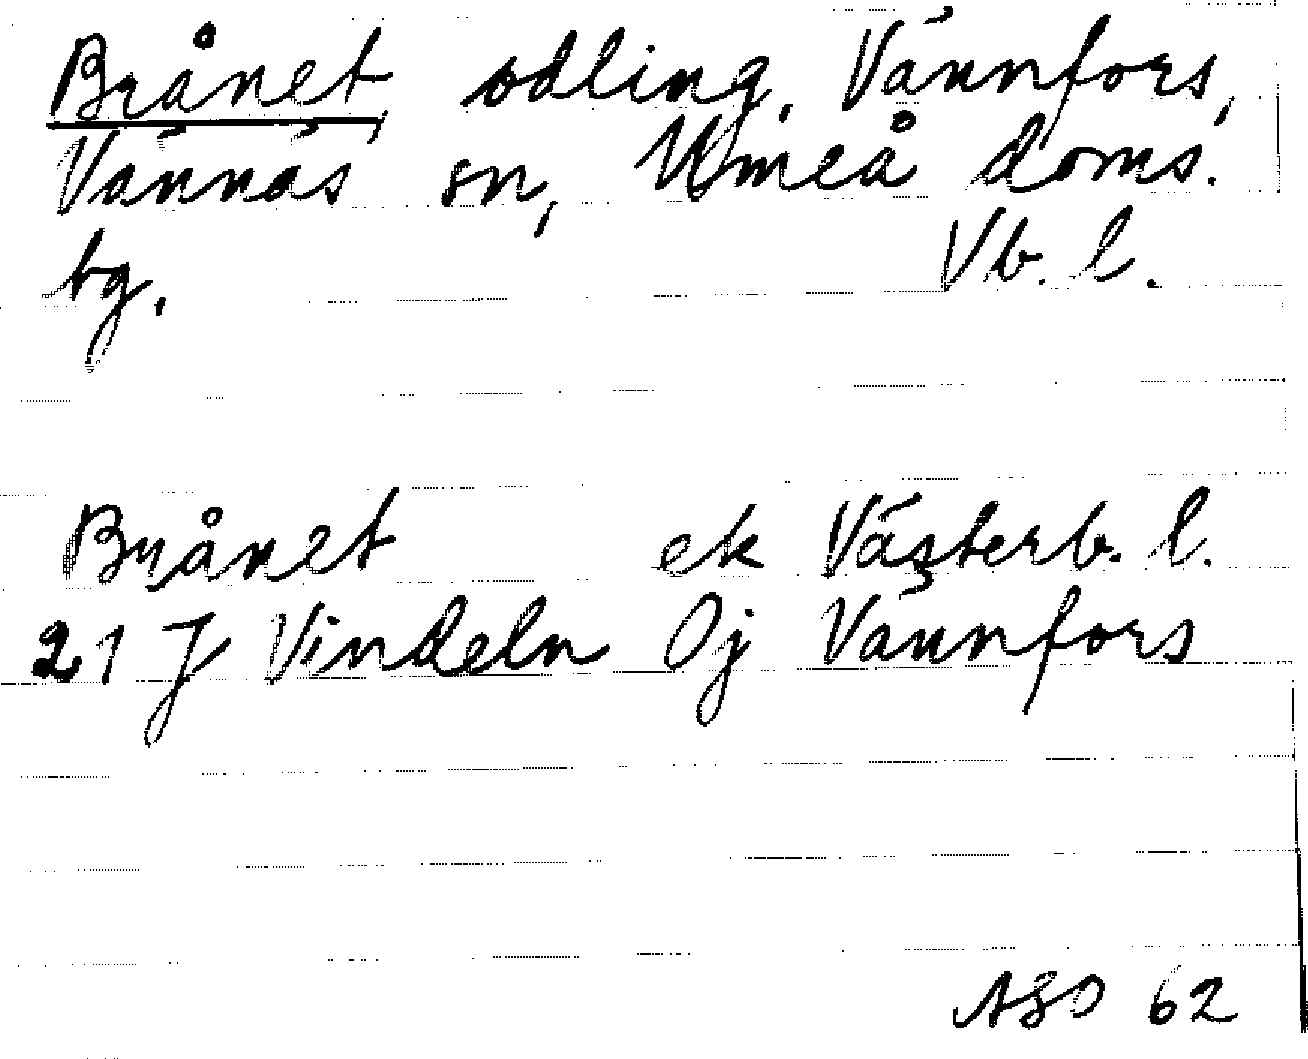 Brånet, odling, Vännfors,
Vännäs sn, Umeå doms.
tg. Vb. l.
Brånet ek Västerb. l.
21 J Vindeln Oj Vännfors
ASO 62